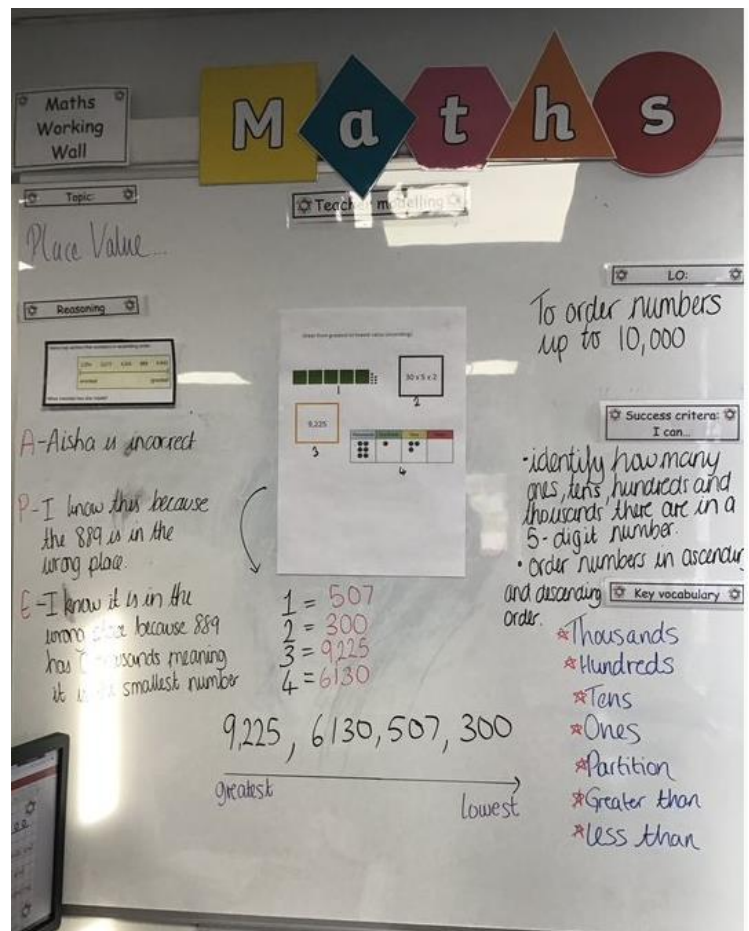 Maths
Working
Wall
Maths
Topic:
Teacher modelling
Place Value...
LO:
To order numbers
up to 10,000
Reasoning
A-Aisha is incorrect
P-I know this because
the 889 is in the
wrong place.
E-I know it is in the
wrong because 889
has thousands meaning
it is smallest number
30 x 5 x 2
1
2
9,225
3
4
1 = 507
2 = 300
3 = 9225
4 = 6130
9,225, 6130, 507, 300
greatest
lowest
Success critera:
I can...
•identify how many
ones, tens, hundreds and
thousands there are in a
5-digit number.
• order numbers in ascending
and descending
order.
Key vocabulary
Thousands
Hundreds
Tens
Ones
Partition
Greater than
less than